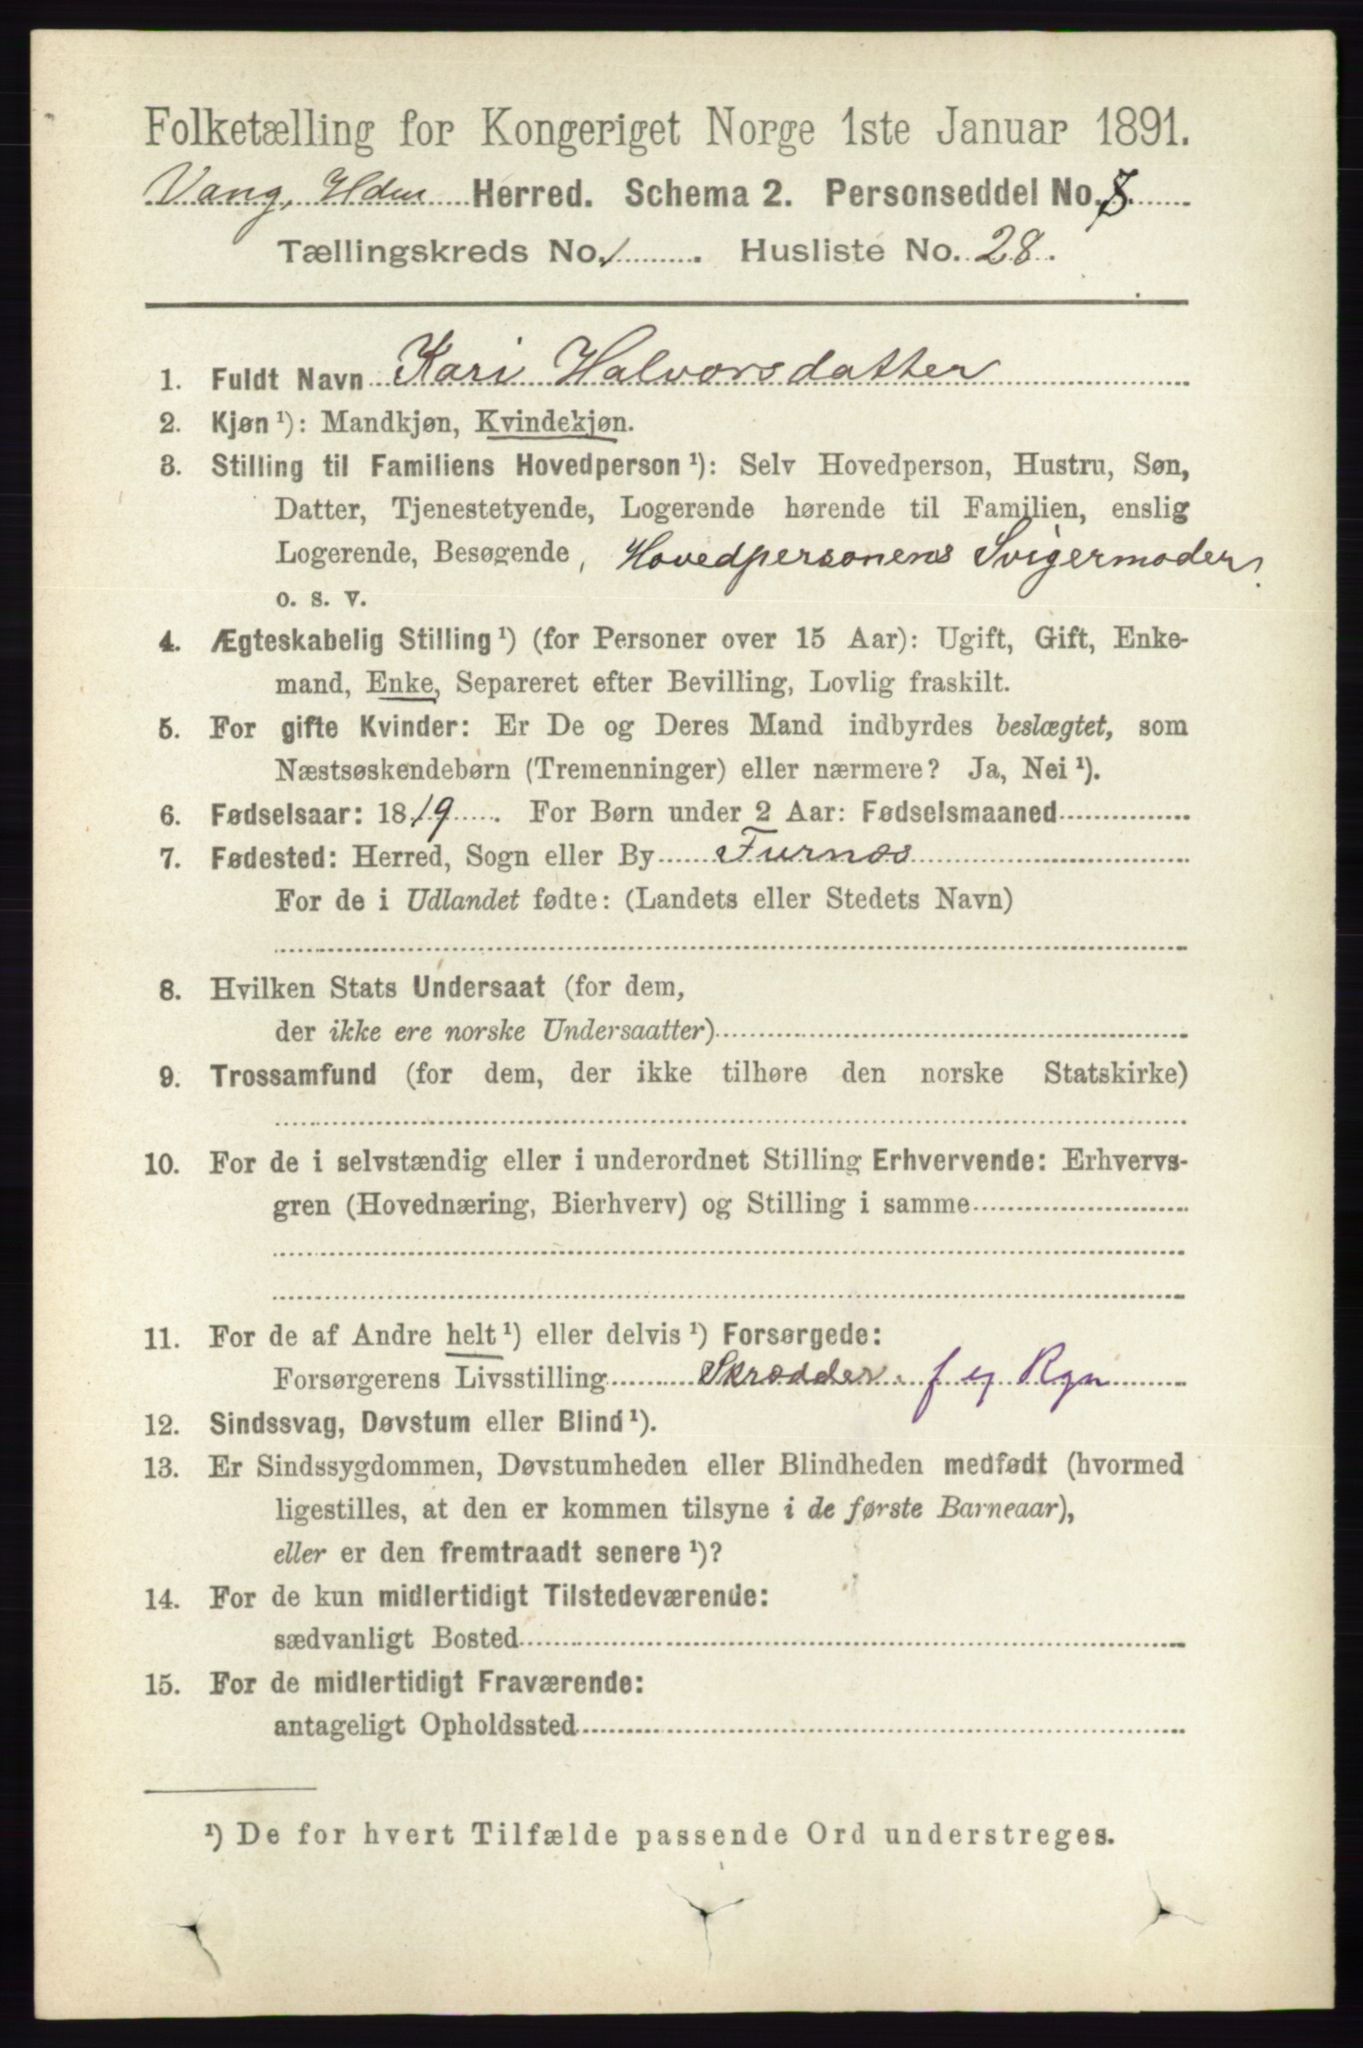 Folketælling for Kongeriget Norge 1ste Januar 1891.
Vang, Hdm Herred. Schema 2. Personseddel No.
Tællingskreds No. 1. Husliste No. 28.
1. Fuldt Navn Kari Halvorsdatter
2. Kjøn ¹): Mandkjøn, Kvindekjøn.
3. Stilling til Familiens Hovedperson ¹): Selv Hovedperson, Hustru, Søn,
Datter, Tjenestetyende, Logerende hørende til Familien, enslig
Logerende, Besøgende, Hovedpersonens Svigermoder.
o. s. v.
4. Ægteskabelig Stilling ¹) (for Personer over 15 Aar): Ugift, Gift, Enke-
mand, Enke, Separeret efter Bevilling, Lovlig fraskilt.
5. For gifte Kvinder: Er De og Deres Mand indbyrdes beslægtet, som
Næstsøskendebørn (Tremenninger) eller nærmere? Ja, Nei ¹).
6. Fødselsaar: 1819. For Børn under 2 Aar: Fødselsmaaned
7. Fødested: Herred, Sogn eller By Furnes
For de i Udlandet fødte: (Landets eller Stedets Navn)
8. Hvilken Stats Undersaat (for dem,
der ikke ere norske Undersaatter)
9. Trossamfund (for dem, der ikke tilhøre den norske Statskirke)
10. For de i selvstændig eller i underordnet Stilling Erhvervende: Erhvervs-
gren (Hovednæring, Bierhverv) og Stilling i samme
11. For de af Andre helt ¹) eller delvis ¹) Forsørgede:
Forsørgerens Livsstilling Skrædder. f eg Rgn
12. Sindssvag, Døvstum eller Blind ¹).
13. Er Sindssygdommen, Døvstumheden eller Blindheden medfødt (hvormed
ligestilles, at den er kommen tilsyne i de første Barneaar),
eller er den fremtraadt senere ¹)?
14. For de kun midlertidigt Tilstedeværende:
sædvanligt Bosted
15. For de midlertidigt Fraværende:
antageligt Opholdssted
¹) De for hvert Tilfælde passende Ord understreges.